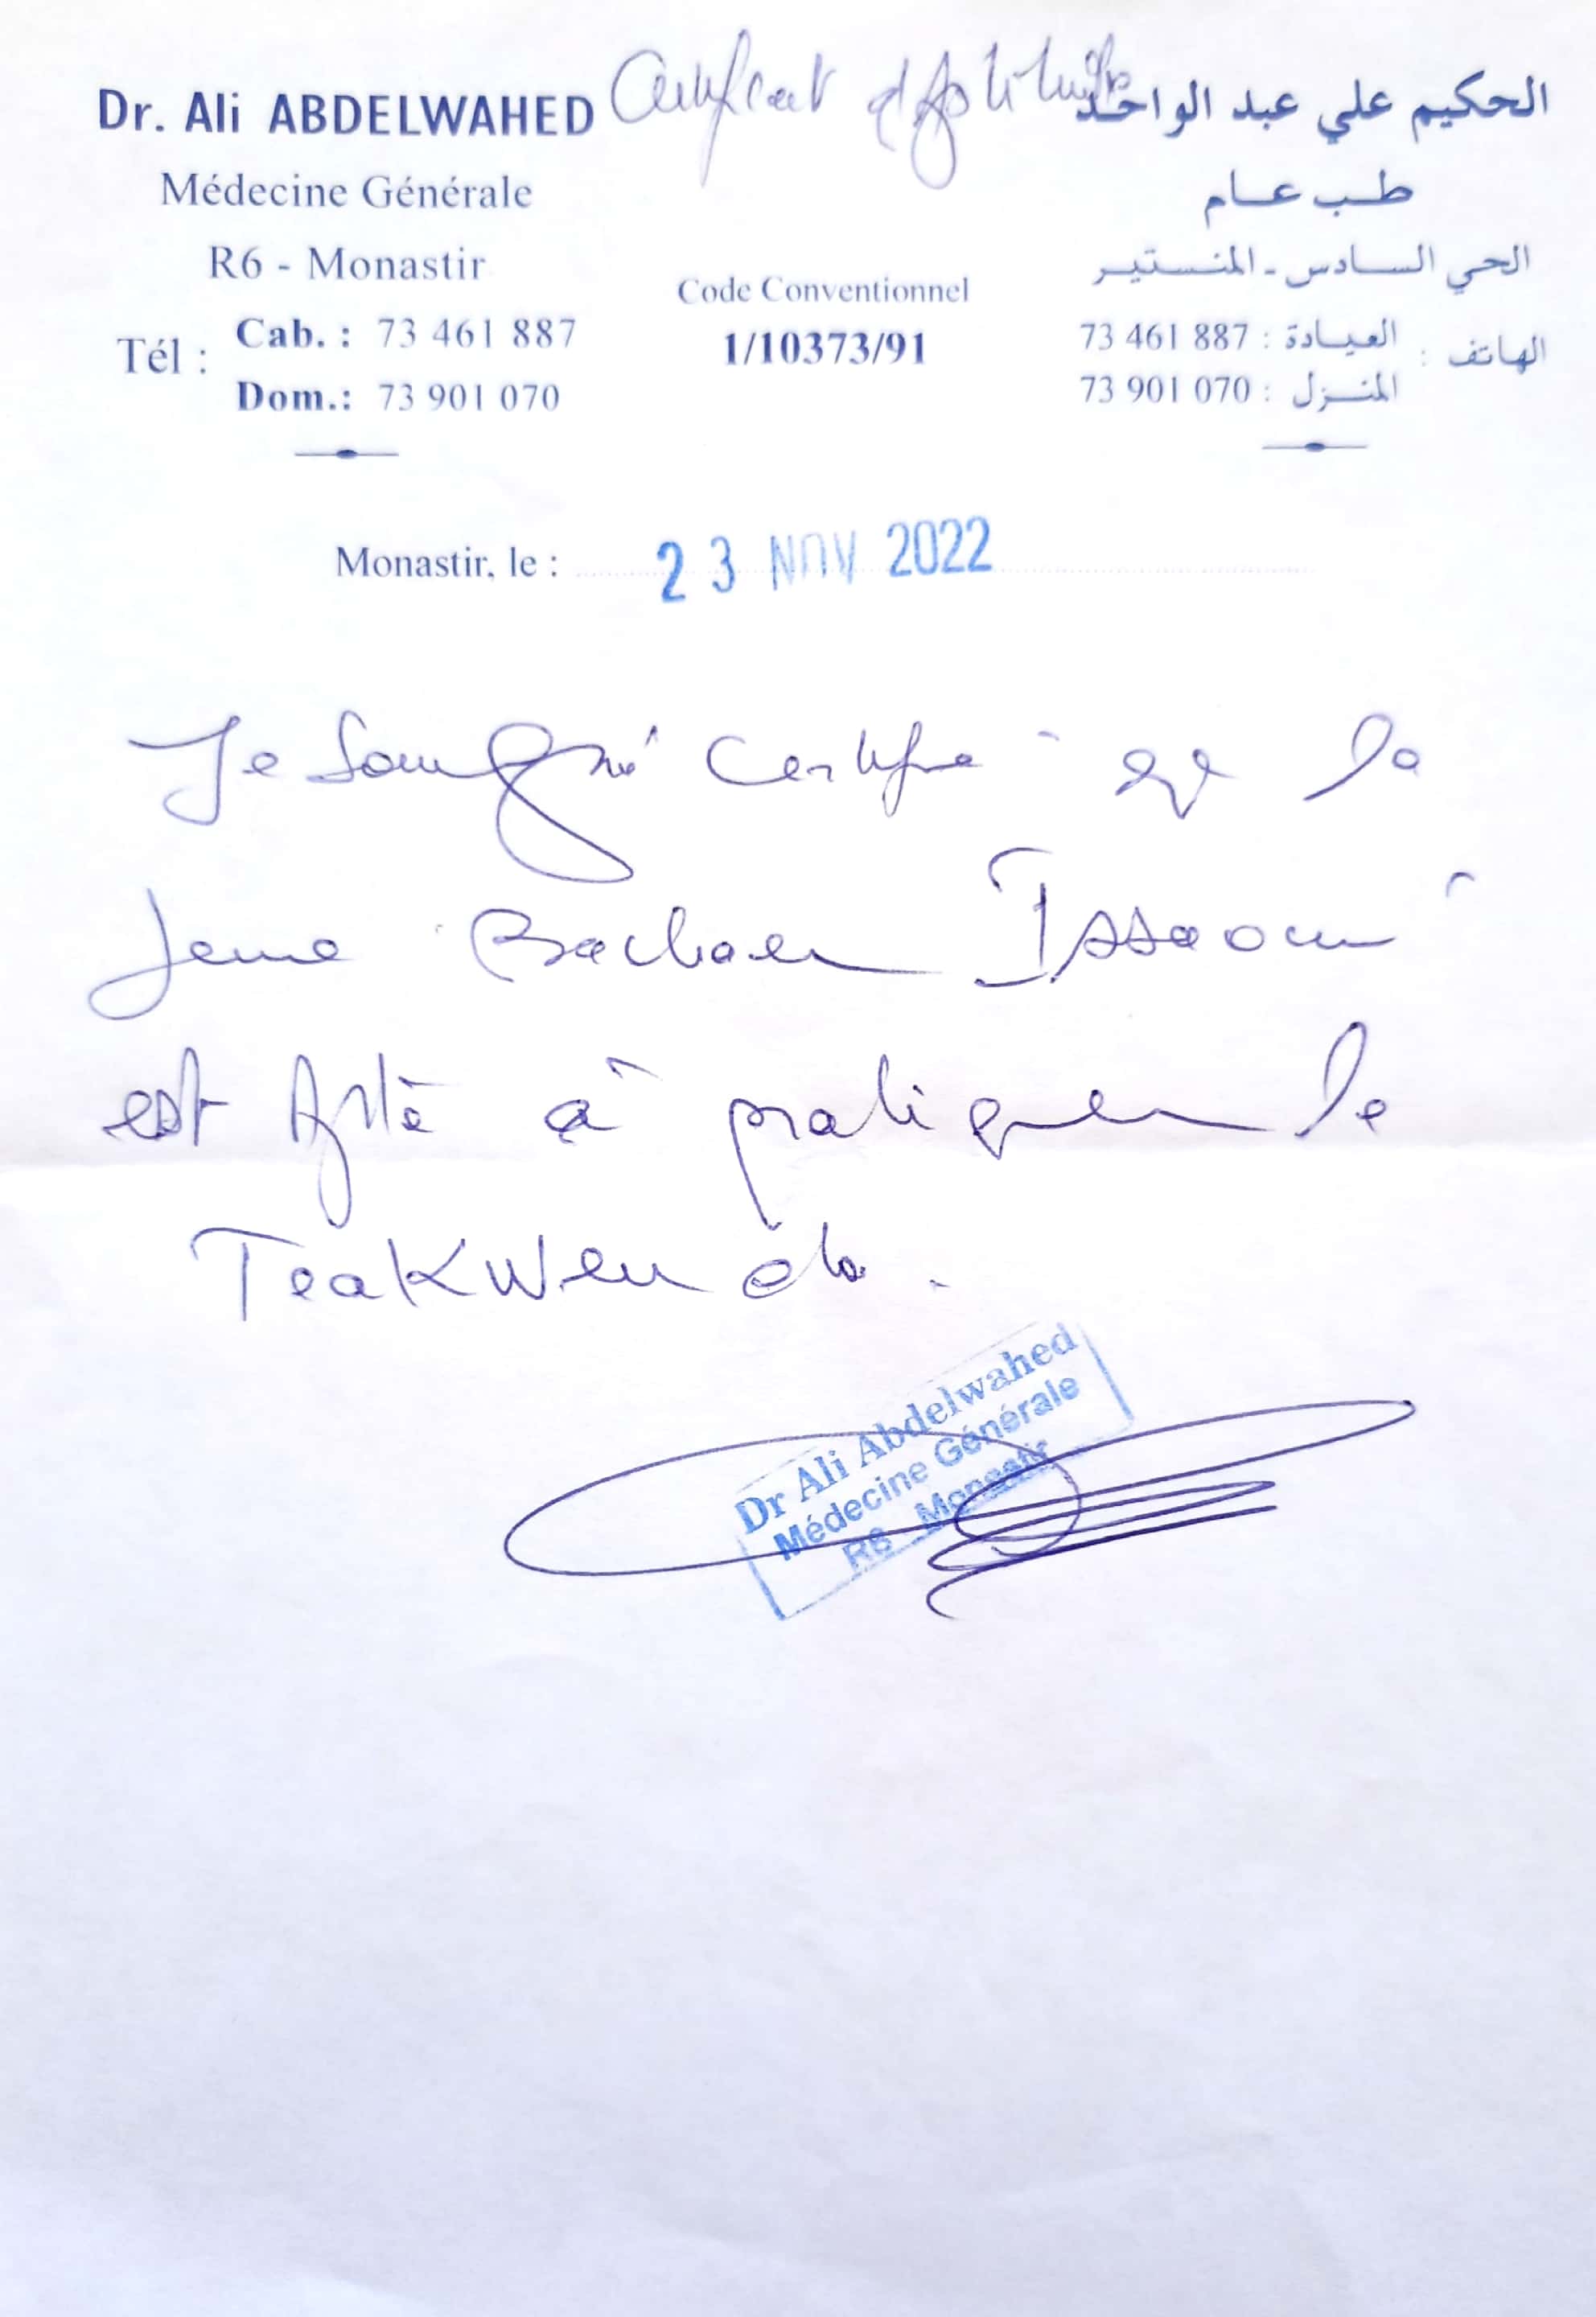 Certificat d'Aptitude
Dr. Ali ABDELWAHED
Médecine Générale
R6 - Monastir
Tél :
Cab. : 73 461 887
Dom.: 73 901 070
Code Conventionnel
1/10373/91
الحكيم علي عبد الواحد
طب عام
الحي السادس - المنستير
الهاتف :
العيادة : 73 461 887
المنزل : 73 901 070
Monastir, le : 23 NOV 2022
Je soussigné certifie que la
Jeune Issaoui
est Apte à pratiquer le
Teakwendo.
Dr Ali Abdelwahed
Médecine Générale
R6 Monastir